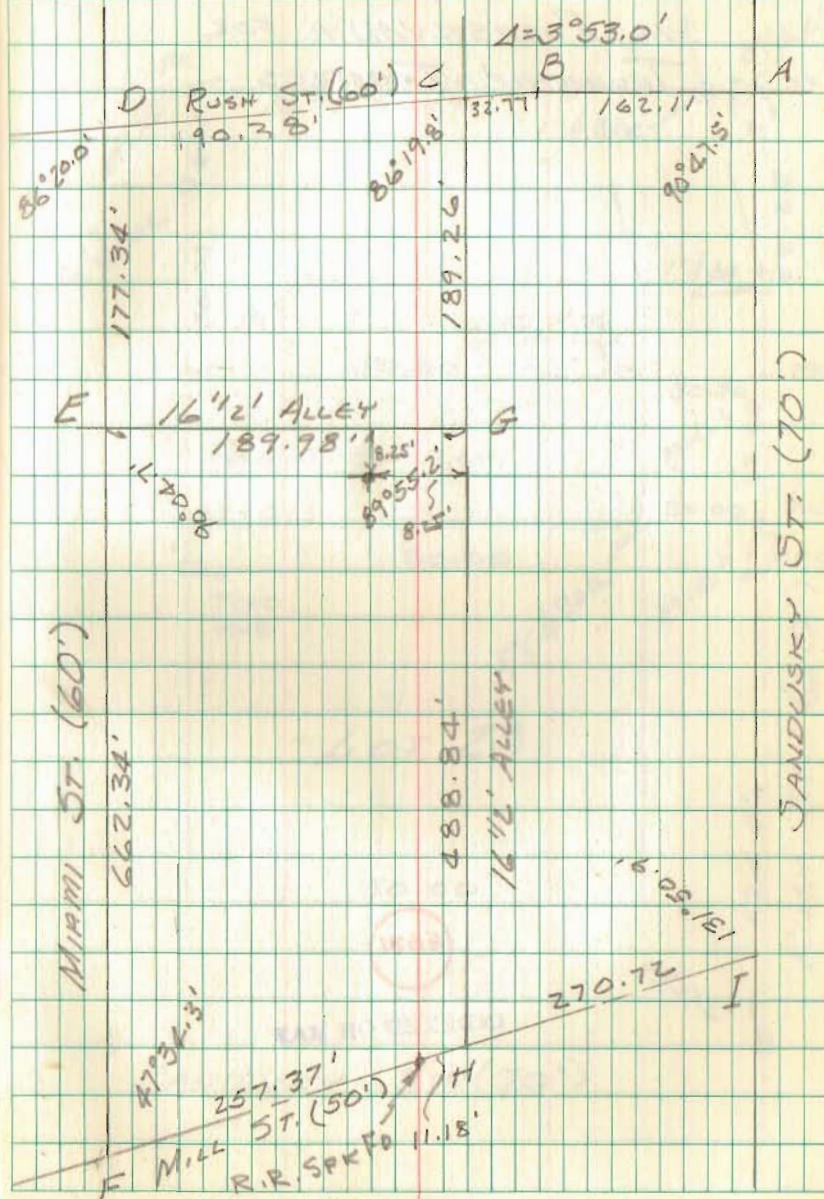 Δ=3°53.0'
D RUSH ST. (60') C B A
190.28' 32.77 162.11
86°20.0' 86°19.8' 90°47.5'
177.34' 189.26'
E 16 1/2' ALLEY G
189.98'
8.25'
90°04.7' 89°55.2'
8.25'
MIAMI ST. (60')
662.34'
488.84'
16 1/2' ALLEY
SANDUSKY ST. (70')
131°50.9'
270.72
I
47°34.3'
257.37' H
F MILL ST. (50')
R.R. SPK FD 11.18'